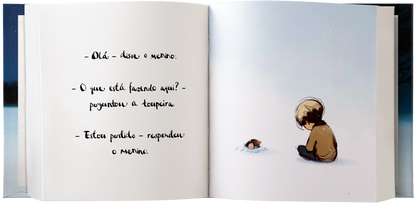 - Olá - disse o menino.
- O que está fazendo aqui? -
perguntou a toupeira.
- Estou perdido - respondeu
o menino.